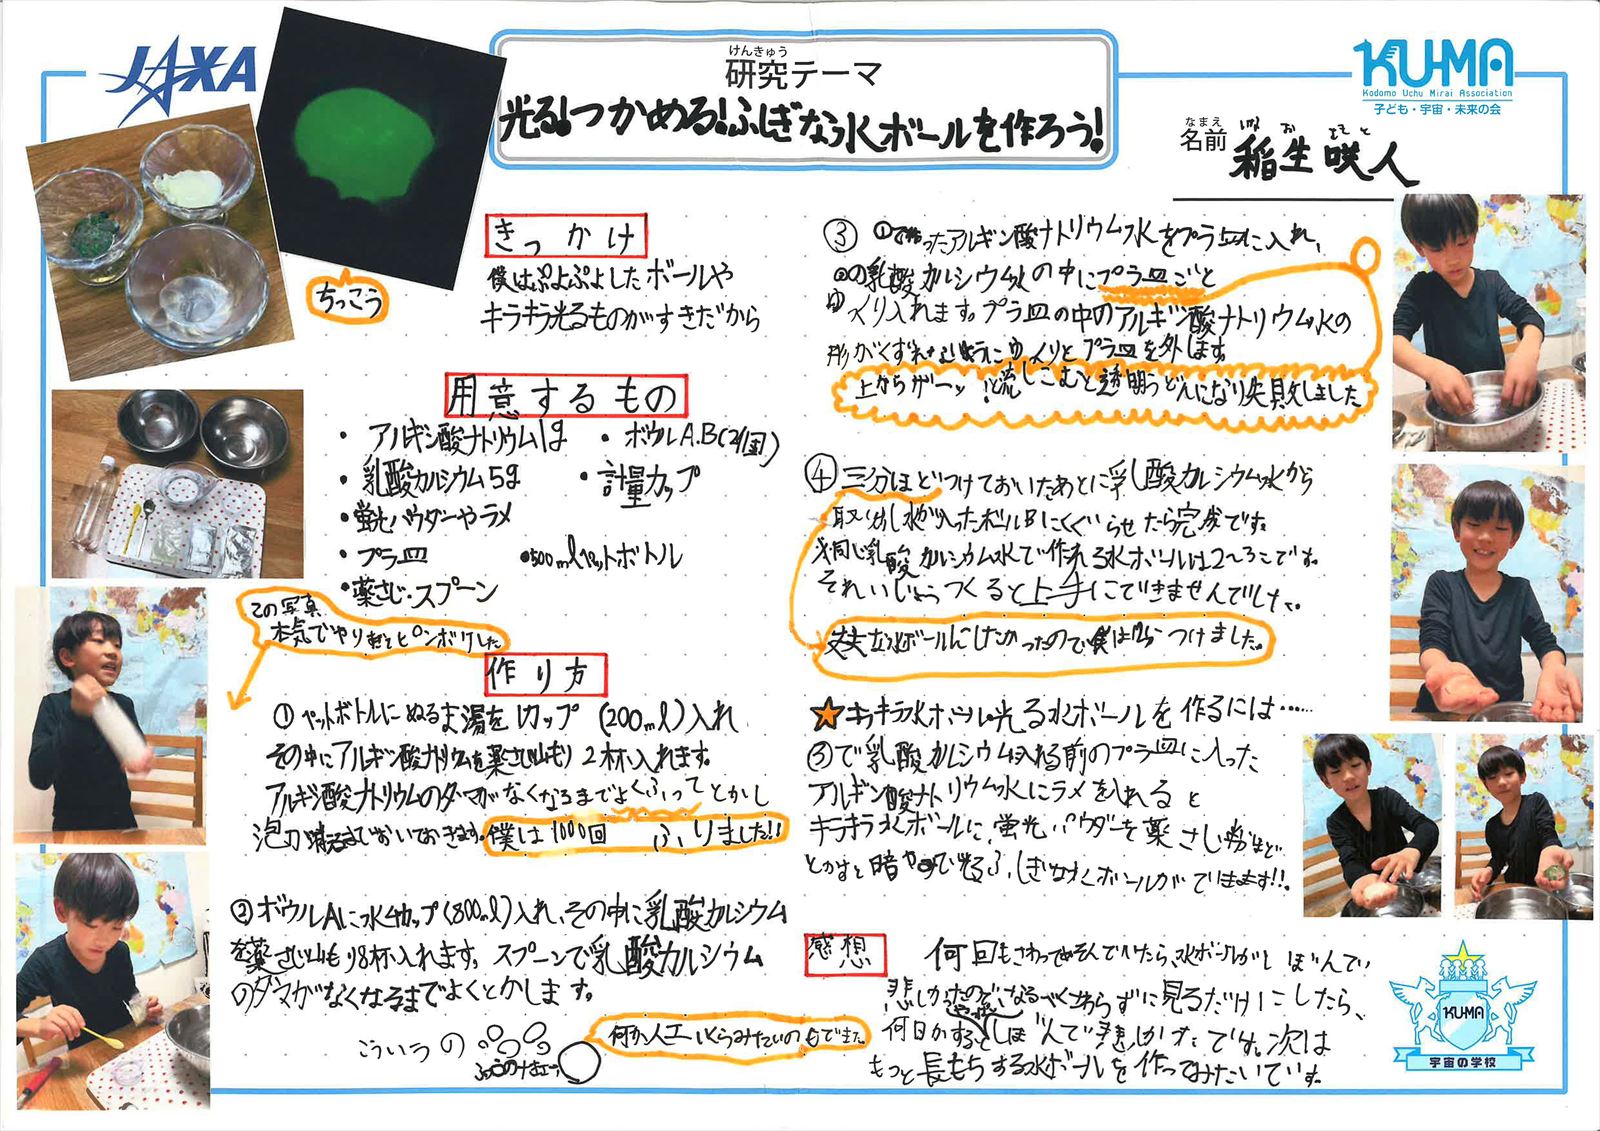 JAXA
けんきゅう
研究テーマ
光る!つかめる!ふしぎな水ボールを作ろう!
KU-MA
Kodomo Uchu Mirai Association
子ども・宇宙・未来の会
なまえ
名前
稲生咲人
ちっこう
きっかけ
僕はぷよぷよしたボールや
キラキラ光るものがすきだから
用意するもの
・アルギン酸ナトリウム1g
・ボウルA.B(2個)
・乳酸カルシウム5g
・計量カップ
・蛍光パウダーやラメ
・プラ皿
・500mlペットボトル
・薬さじ・スプーン
この写真
本気でやりすぎてピンボケした
作り方
①ペットボトルにぬるま湯を1カップ(200ml)入れ
その中にアルギン酸ナトリウムを薬さじ山もり2杯入れます。
アルギン酸ナトリウムのダマがなくなるまでよくふってとかし
泡が消えるまでおいておきます。僕は1000回ふりました!!
②ボウルAに水4カップ(800ml)入れ、その中に乳酸カルシウム
を薬さじ山もり8杯入れます。スプーンで乳酸カルシウム
のダマがなくなるまでよくとかします。
こういうの
何か人工いくらみたいのもできた
③①で作ったアルギン酸ナトリウム水をプラ皿に入れ、
②の乳酸カルシウム水の中にプラ皿ごと
ゆっくり入れます。プラ皿の中のアルギン酸ナトリウム水の
形がくずれないようにゆっくりとプラ皿を外します。
上からザーッと流しこむと透明うどんになり失敗しました
④三分ほどつけておいたあとに乳酸カルシウム水から
取り出し水が入ったボールBにくぐらせたら完成です。
※同じ乳酸カルシウム水で作れる水ボールは2〜3こです。
それいじょうつくると上手にできませんでした。
丈夫な水ボールにしたかったので僕は つけました。
★キラキラ水ボール・光る水ボールを作るには……
③で乳酸カルシウム入れる前のプラ皿に入った
アルギン酸ナトリウム水にラメを入れると
キラキラ水ボールに、蛍光パウダーを薬さじ ほど
とかすと暗やみで光るふしぎな水ボールができます!!。
感想
何回もさわってあそんでいたら、水ボールがしぼんで
悲しかったのでなるべくさわらずに見るだけにしたら、
何日かするとやっぱりしぼんで悲しかったです。次は
もっと長もちする水ボールを作ってみたいです。
KU-MA
宇宙の学校